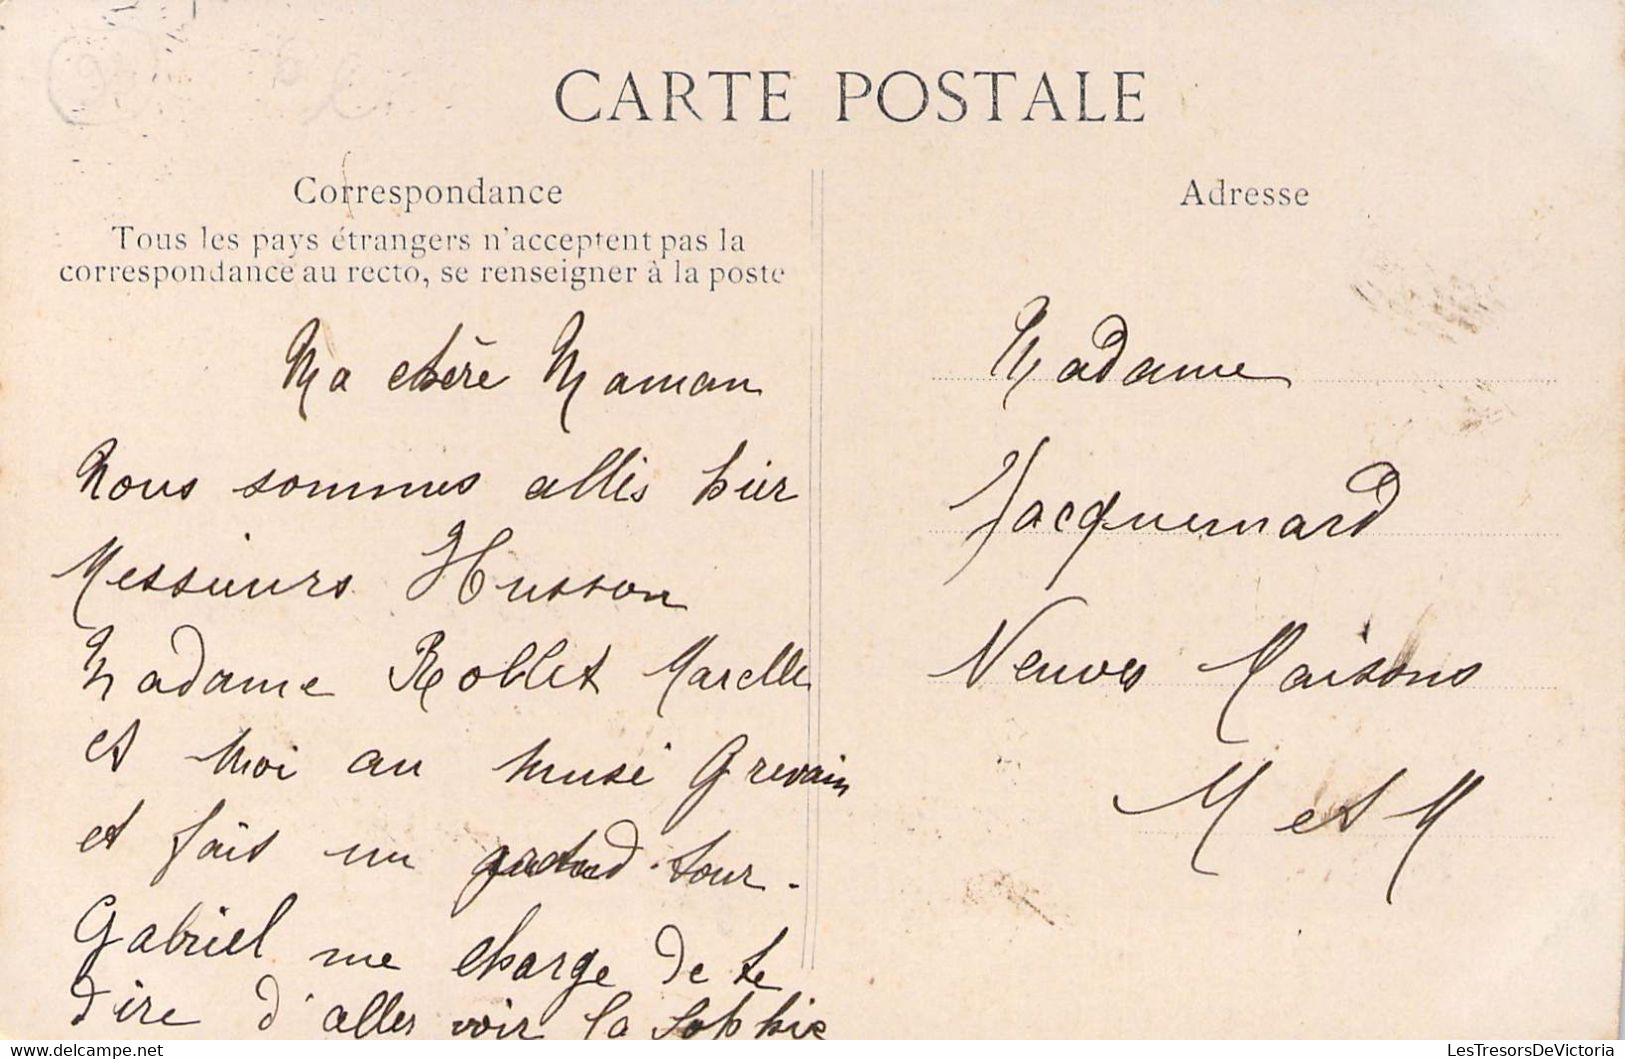 CARTE POSTALE
Correspondance
Tous les pays étrangers n'acceptent pas la
correspondance au recto, se renseigner à la poste
Ma chère Maman
Nous sommes allés hier
Messieurs Husson
Madame Rollet Marcelle
et moi au musé Grevain
et fait un grand tour.
Gabriel me charge de te
dire d'aller voir la Sophie
Adresse
Madame
Jacquemard
Neuves Maisons
M et M
www.delcampe.net
LesTresorsDeVictoria